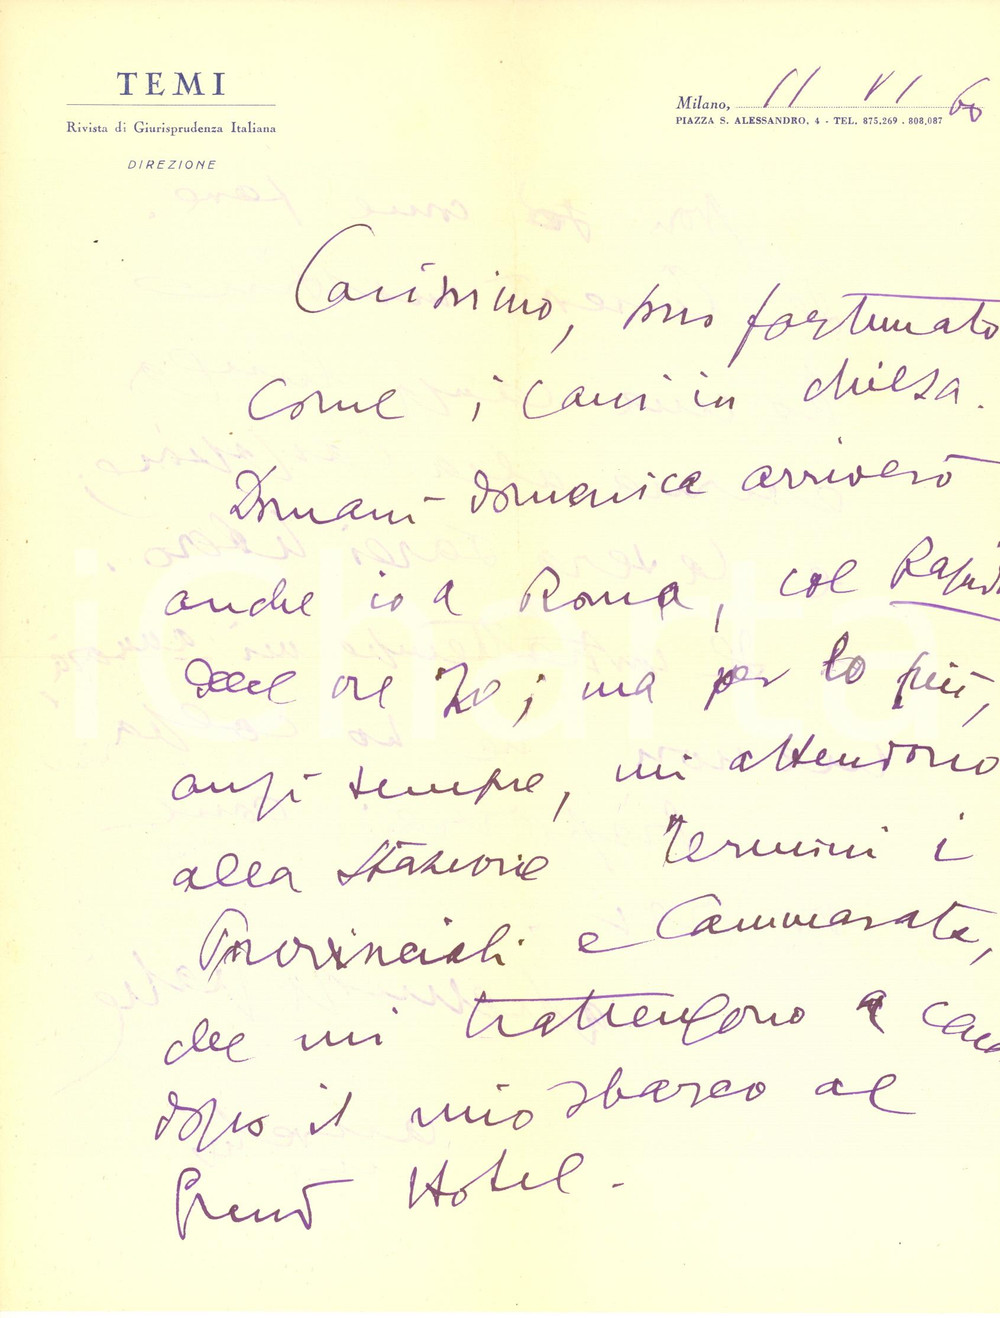 TEMI
Rivista di Giurisprudenza Italiana
DIREZIONE
Milano, 11 VI 60
PIAZZA S. ALESSANDRO, 4 - TEL. 875,269 - 808,087
Carissimo, sono fortunato
come i cani in chiesa.
Domani - domenica arriverò
anche io a Roma, col Rapido
delle ore 20; ma per lo più,
anzi sempre, mi attendono
alla Stazione Termini i
Provinciali e Cammarata,
che mi trattengono a cena
dopo il mio sbarco al
Grand Hotel.
icharta